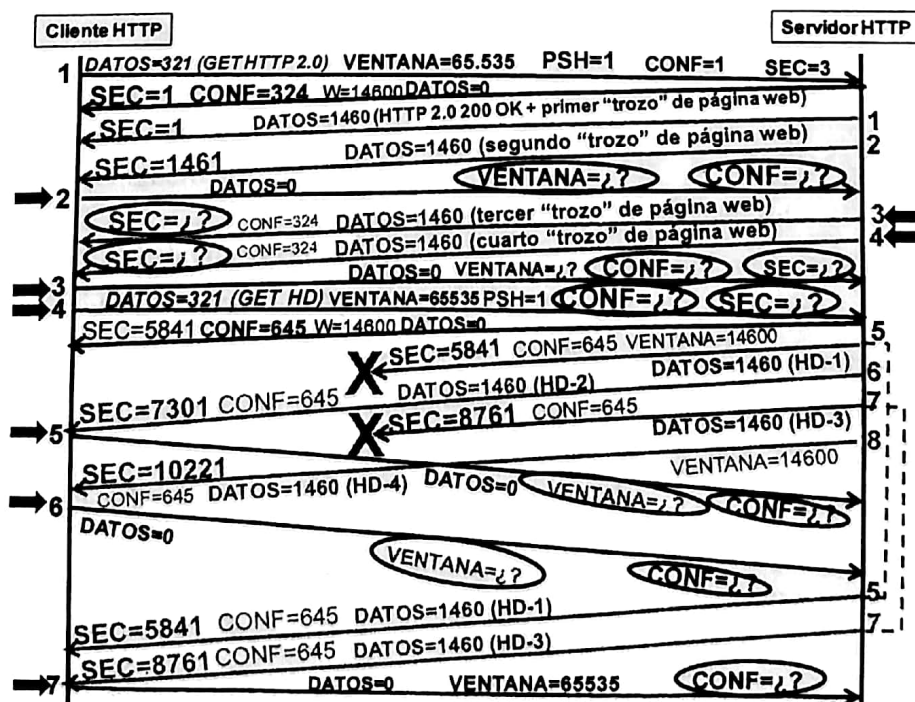 Cliente HTTP
Servidor HTTP
1 DATOS=321 (GET HTTP 2.0) VENTANA=65.535 PSH=1 CONF=1 SEC=3
SEC=1 CONF=324 W=14600 DATOS=0
SEC=1 DATOS=1460 (HTTP 2.0 200 OK + primer "trozo" de página web) 1
DATOS=1460 (segundo "trozo" de página web) 2
SEC=1461
2 DATOS=0 VENTANA=¿? CONF=¿?
SEC=¿? CONF=324 DATOS=1460 (tercer "trozo" de página web) 3
SEC=¿? CONF=324 DATOS=1460 (cuarto "trozo" de página web) 4
3 DATOS=0 VENTANA=¿? CONF=¿? SEC=¿?
4 DATOS=321 (GET HD) VENTANA=65535 PSH=1 CONF=¿? SEC=¿?
SEC=5841 CONF=645 W=14600 DATOS=0
5
X SEC=5841 CONF=645 VENTANA=14600
DATOS=1460 (HD-1)
6
DATOS=1460 (HD-2)
SEC=7301 CONF=645
7
X SEC=8761 CONF=645
DATOS=1460 (HD-3)
5
8
VENTANA=14600
SEC=10221
CONF=645 DATOS=1460 (HD-4)
DATOS=0 VENTANA=¿? CONF=¿?
6
DATOS=0
VENTANA=¿? CONF=¿?
5
SEC=5841 CONF=645 DATOS=1460 (HD-1)
7
SEC=8761 CONF=645 DATOS=1460 (HD-3)
7 DATOS=0 VENTANA=65535 CONF=¿?